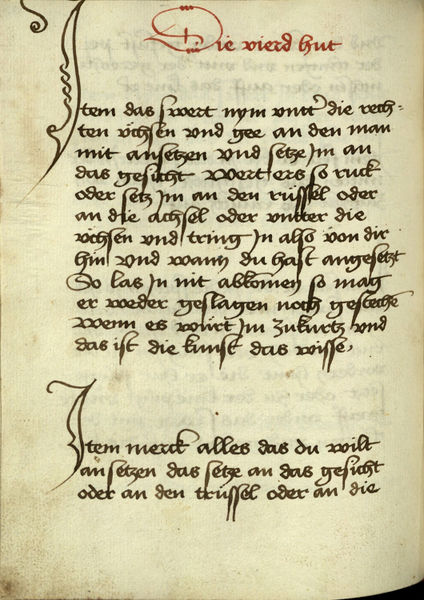 Die vierd hut
Item das swert nym vntter die rech-
ten vchsen vnd gee an den man
mit ansetzen vnd setz im an
das gesicht wert ers so ruck
oder setz im an den rüssel oder
an die achsel oder vntter die
vchsen vnd tring in also von dir
hin vnd wann du hast angesetzt
So las in nit abkomen so mag
er weder geslagen noch gestechen
wenn es würt im zukurtz vnd
das ist die kunst das wisse
Item merck alles das du wilt
ansetzen das setze an das gesicht
oder an den trüssel oder an die